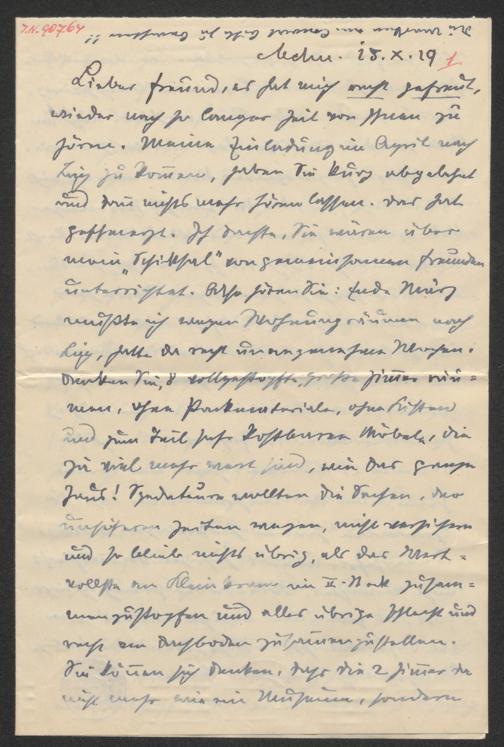 I.N. 90764
15.X.19 1
Lieber Freund, es hat mich recht gefreut,
wieder nach so langer Zeit von Ihnen zu
hören. Meine Einladung im April nach
Linz zu kommen, haben Sie kurz abgelehnt
und dann nichts mehr hören lassen. Das hat
geschmerzt. Ich dachte, Sie wären über
mein "Schicksal" von gemeinsamen Freunden
unterrichtet. Also hören Sie: Ende März
mußte ich wegen Wohnungräumen nach
Linz, hatte da recht unangenehme Wochen.
Denken Sie, 8 vollgestopfte, große Zimmer räu=
men, ohne Packmateriale, ohne Kisten
und zum Teil sehr kostbaren Möbeln, die
ja viel mehr wert sind, wie das ganze
Haus! Spediteure wollten die Sachen, der
unsicheren Zeiten wegen, nicht versichern
und so blieb nichts übrig, als das Wert=
vollste an Kleinkram im II. Stock zusam=
menzustopfen und alles übrige schlecht und
recht am Dachboden zusammenzustellen.
Sie können sich denken, daß die 2 Zimmer da
nicht mehr wie ein Museum, sondern